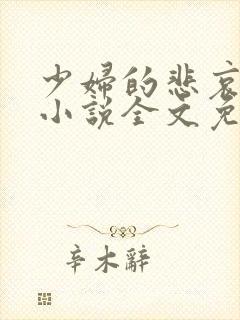 少妇的悲哀
小说全文免
辛木辭